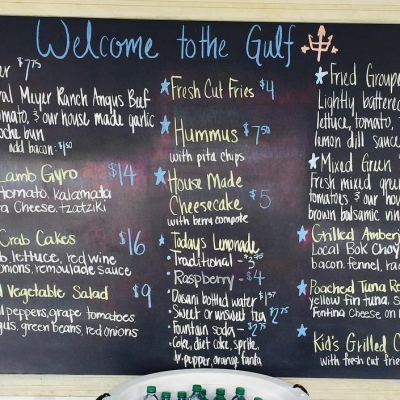 Welcome to the Gulf
$7.75
Meyer Ranch Angus Beef
tomato, & our house made garlic
bun
add bacon: $1.50
Lamb Gyro $14
tomato, kalamada
Cheese, tzatziki
Crab Cakes $16
lettuce, red wine
onions, remoulade sauce
Vegetable Salad $9
peppers, grape tomatoes
green beans, red onions
Fresh Cut Fries $4
Hummus $7.50
with pita chips
House Made
Cheesecake $5
with berry compote
Today's Lemonade
• Traditional -
Raspberry - $4
• Dasani bottled water
• Sweet or unsweet tea $2.75
• Fountain soda - $2.75
• Coke, diet coke, sprite,
pepper, orange fanta
Fried Groupe
Lightly battered
lettuce, tomato,
lemon dill sauce
Mixed Green
Fresh mixed green
tomatoes & our hou
brown balsamic vin
Grilled Amberj
Local Bok Choy
bacon, fennel,
Poached Tuna
yellow fin tuna,
Fontina Cheese on
Kid's Grilled C
with fresh cut fries